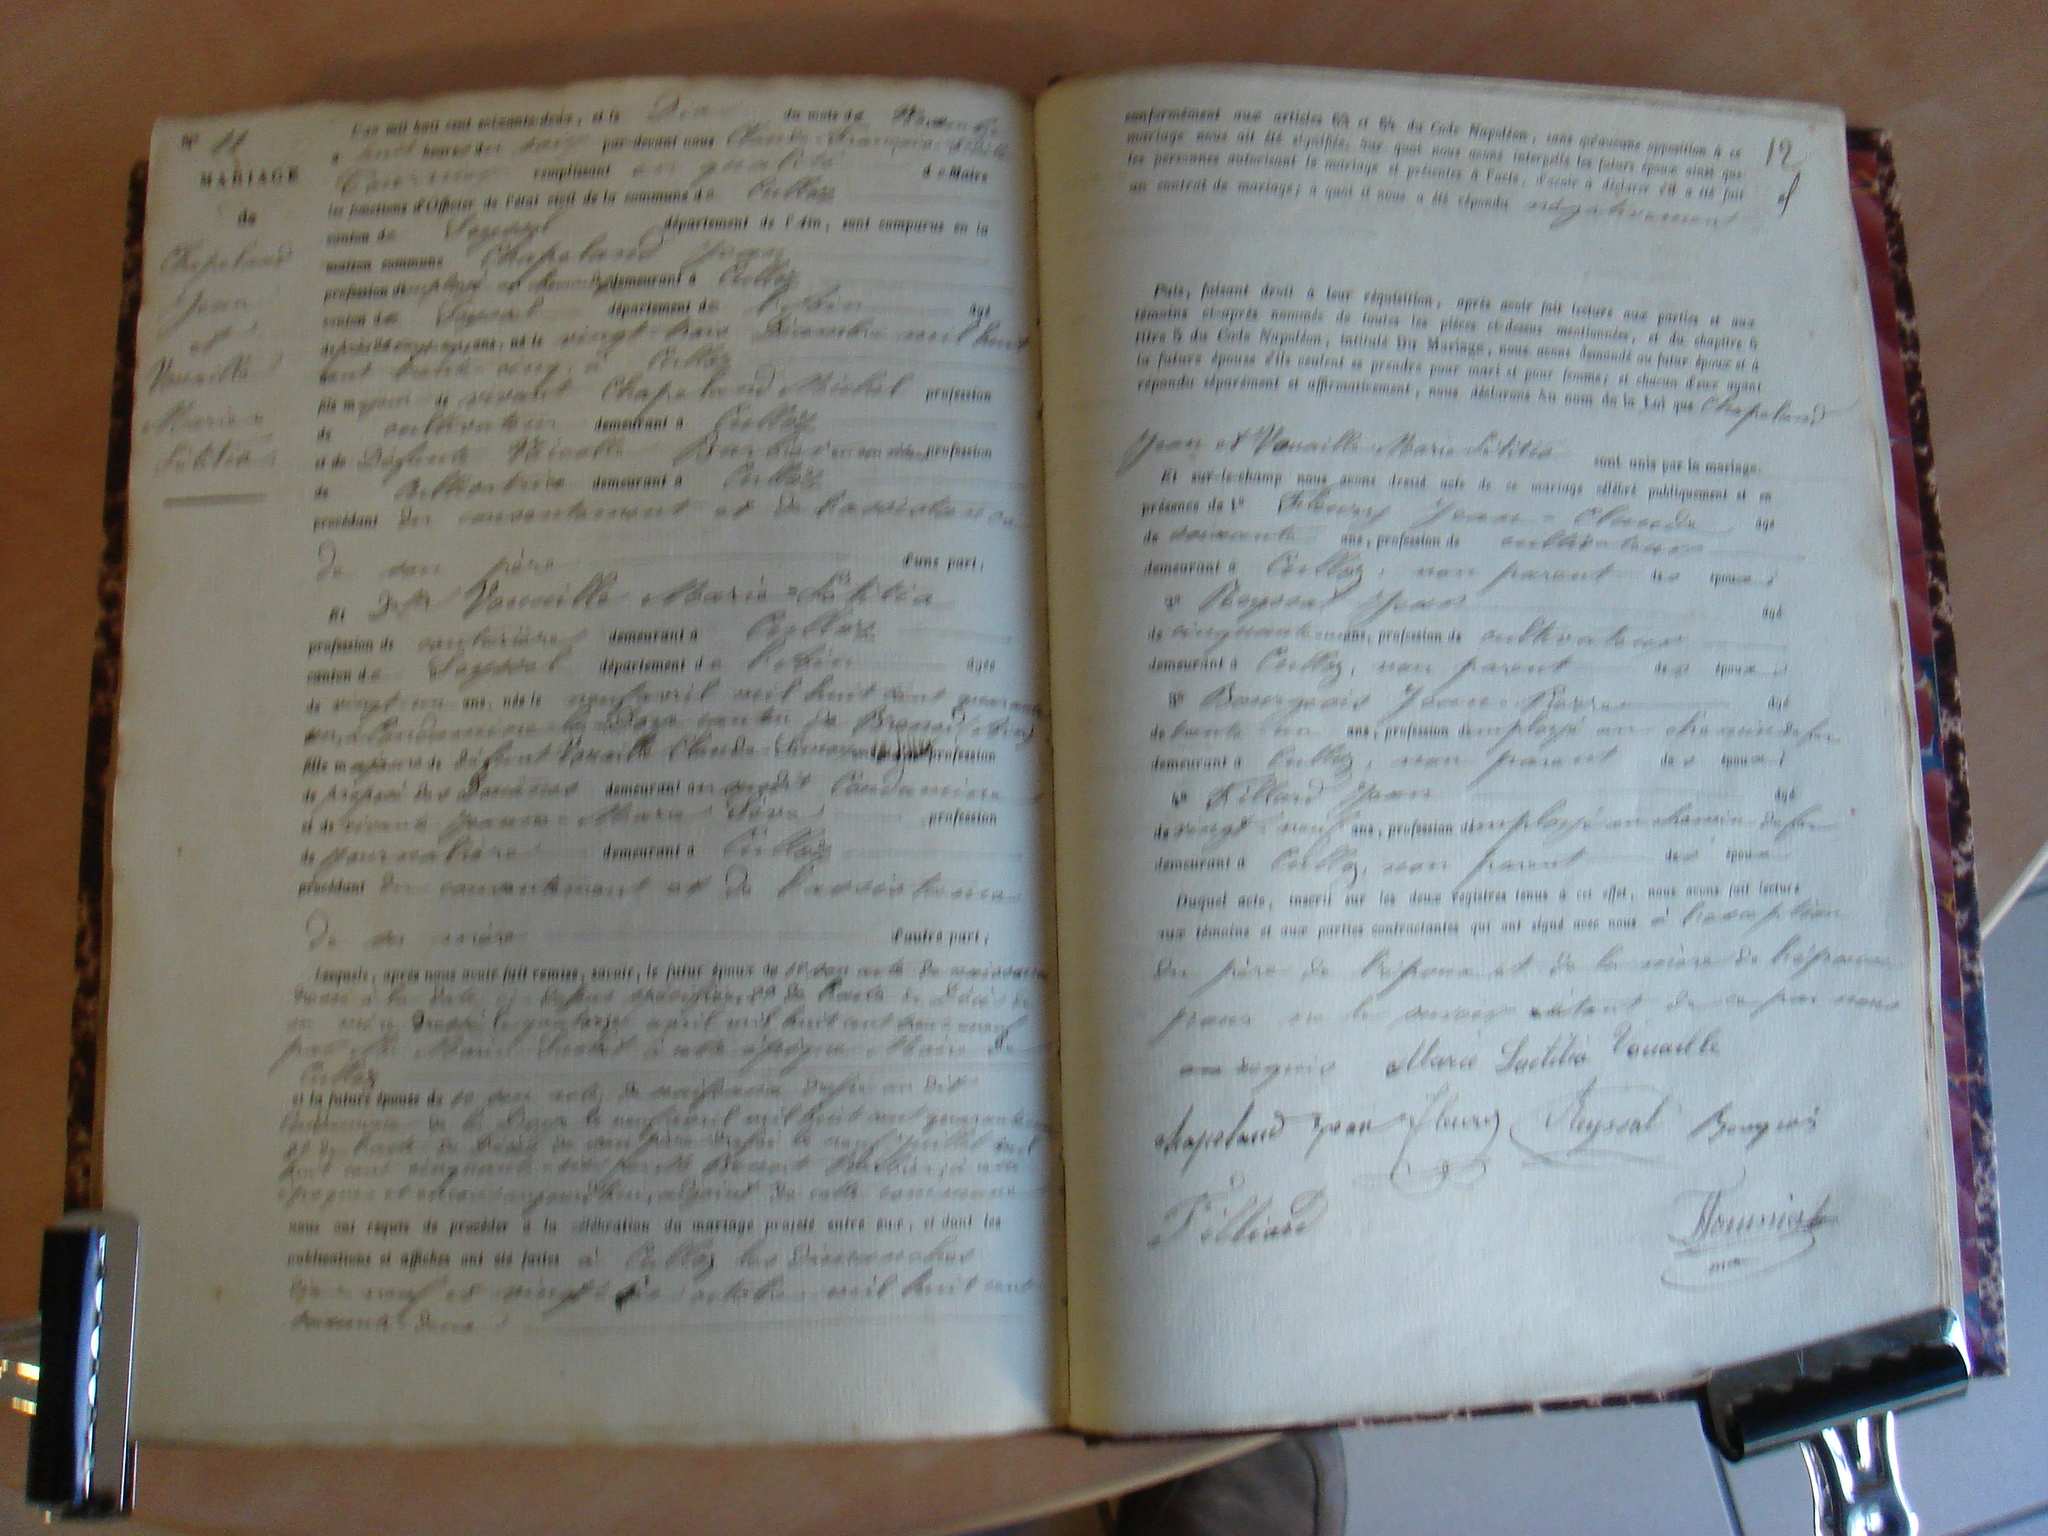 N° 11
MARIAGE
de
Chapeland
Jean
et
Vouaille
Marie
Létitia
L'an mil huit cent soixante-deux, et le Dix du mois de Novembre
à heures du soir par-devant nous Claude François
remplissant en qualité de Maire
les fonctions d'Officier de l'état civil de la commune de Culloz
canton de Seyssel département de l'Ain, sont comparus en la
maison commune Chapeland Jean
profession d'employé demeurant à Culloz
canton de Seyssel département de l'Ain âgé
de ans, né le vingt-trois Décembre mil huit
cent trente-cinq, à Culloz
fils majeur de vivant Chapeland Michel profession
de cultivateur demeurant à Culloz
et de Défunte profession
de cultivatrice demeurant à Culloz
procédant du consentement et de l'assistance
de son père d'une part,
Et Dlle Vouaille Marie-Létitia
profession de couturière demeurant à Culloz
canton de Seyssel département de l'Ain âgée
de vingt-un ans, née le neuf avril mil huit cent quarante
un, à Condamine la Doye canton de Brenod (Ain)
fille majeure de défunt Vouaille Claude profession
de préposé des Douanes demeurant au dit Condamine
et de vivante Jeanne-Marie profession
de journalière demeurant à Culloz
procédant du consentement et de l'assistance
de sa mère d'autre part,
Lesquels, après nous avoir fait remise, savoir, le futur époux de 1° son acte de naissance
à la date ci-dessus 2° de l'acte de Décès de
sa mère Dressé le quatorze avril mil huit cent
par Mr à cette époque Maire de
Culloz
et la future épouse de 1° son acte de naissance au dit
Condamine de la Doye le neuf avril mil huit cent quarante un
2° de l'acte de Décès de son père le neuf juillet mil
huit cent cinquante par Mr Benoit à cette
époque et encore aujourd'hui, adjoint de cette commune
nous ont requis de procéder à la célébration du mariage projeté entre eux, et dont les
publications et affiches ont été faites à Culloz les Dimanches
Dix-neuf et vingt-six octobre mil huit cent
soixante-deux
12
conformément aux articles 63 et 64 du Code Napoléon, sans qu'aucune opposition à ce
mariage nous ait été signifiée. Sur quoi nous avons interpellé les futurs époux ainsi que
les personnes autorisant le mariage et présentes à l'acte, d'avoir à déclarer s'il a été fait
un contrat de mariage; à quoi il nous a été répondu négativement
Puis, faisant droit à leur réquisition, après avoir fait lecture aux parties et aux
témoins ci-après nommés de toutes les pièces ci-dessus mentionnées, et du chapitre 6
titre 5 du Code Napoléon, intitulé Du Mariage, nous avons demandé au futur époux et à
la future épouse s'ils veulent se prendre pour mari et pour femme; et chacun d'eux ayant
répondu séparément et affirmativement, nous déclarons Au nom de la Loi que Chapeland
Jean et Vouaille Marie Létitia sont unis par le mariage.
Et sur-le-champ nous avons dressé acte de ce mariage célébré publiquement et en
présence de 1° Fleury Jean-Claude âgé
de soixante ans, profession de cultivateur
demeurant à Culloz, non parent des époux;
2° Reyssat Jean âgé
de cinquante ans, profession de cultivateur
demeurant à Culloz, non parent des époux;
3° Bourgeois Jean-Pierre âgé
de trente-un ans, profession d'employé au chemin de fer
demeurant à Culloz, non parent des époux;
4° Filliard Jean âgé
de vingt-neuf ans, profession d'employé au chemin de fer
demeurant à Culloz, non parent des époux
Duquel acte, inscrit sur les deux registres tenus à cet effet, nous avons fait lecture
aux témoins et aux parties contractantes qui ont signé avec nous à l'exception
du père de l'époux et de la mère de l'épouse
pour ne le savoir étant de ce par nous
requis Marie Laetitia Vouaille
Chapeland Jean Fleury Reyssat Bourgeois
Filliard